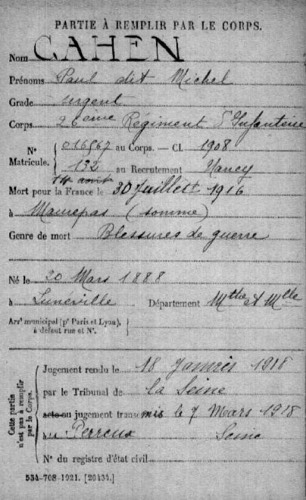 PARTIE À REMPLIR PAR LE CORPS.
Nom CAHEN
Prénoms Paul dit Michel
Grade sergent
Corps 26ème Régiment d'Infanterie
N° 016967 au Corps. — Cl. 1908
Matricule. 132 au Recrutement Nancy
Mort pour la France le 30 Juillet 1916
à Maurepas (somme)
Genre de mort Blessures de guerre
Né le 20 Mars 1888
à Lunéville Département Mthe et Mlle
Arrt municipal (pr Paris et Lyon),
à défaut rue et N°.
Cette partie n'est pas à remplir par le Corps.
Jugement rendu le 18 Janvier 1918
par le Tribunal de la Seine
acte ou jugement transcrit le 7 Mars 1918
au Perreux Seine
N° du registre d'état civil
534-708-1921. [26434.]